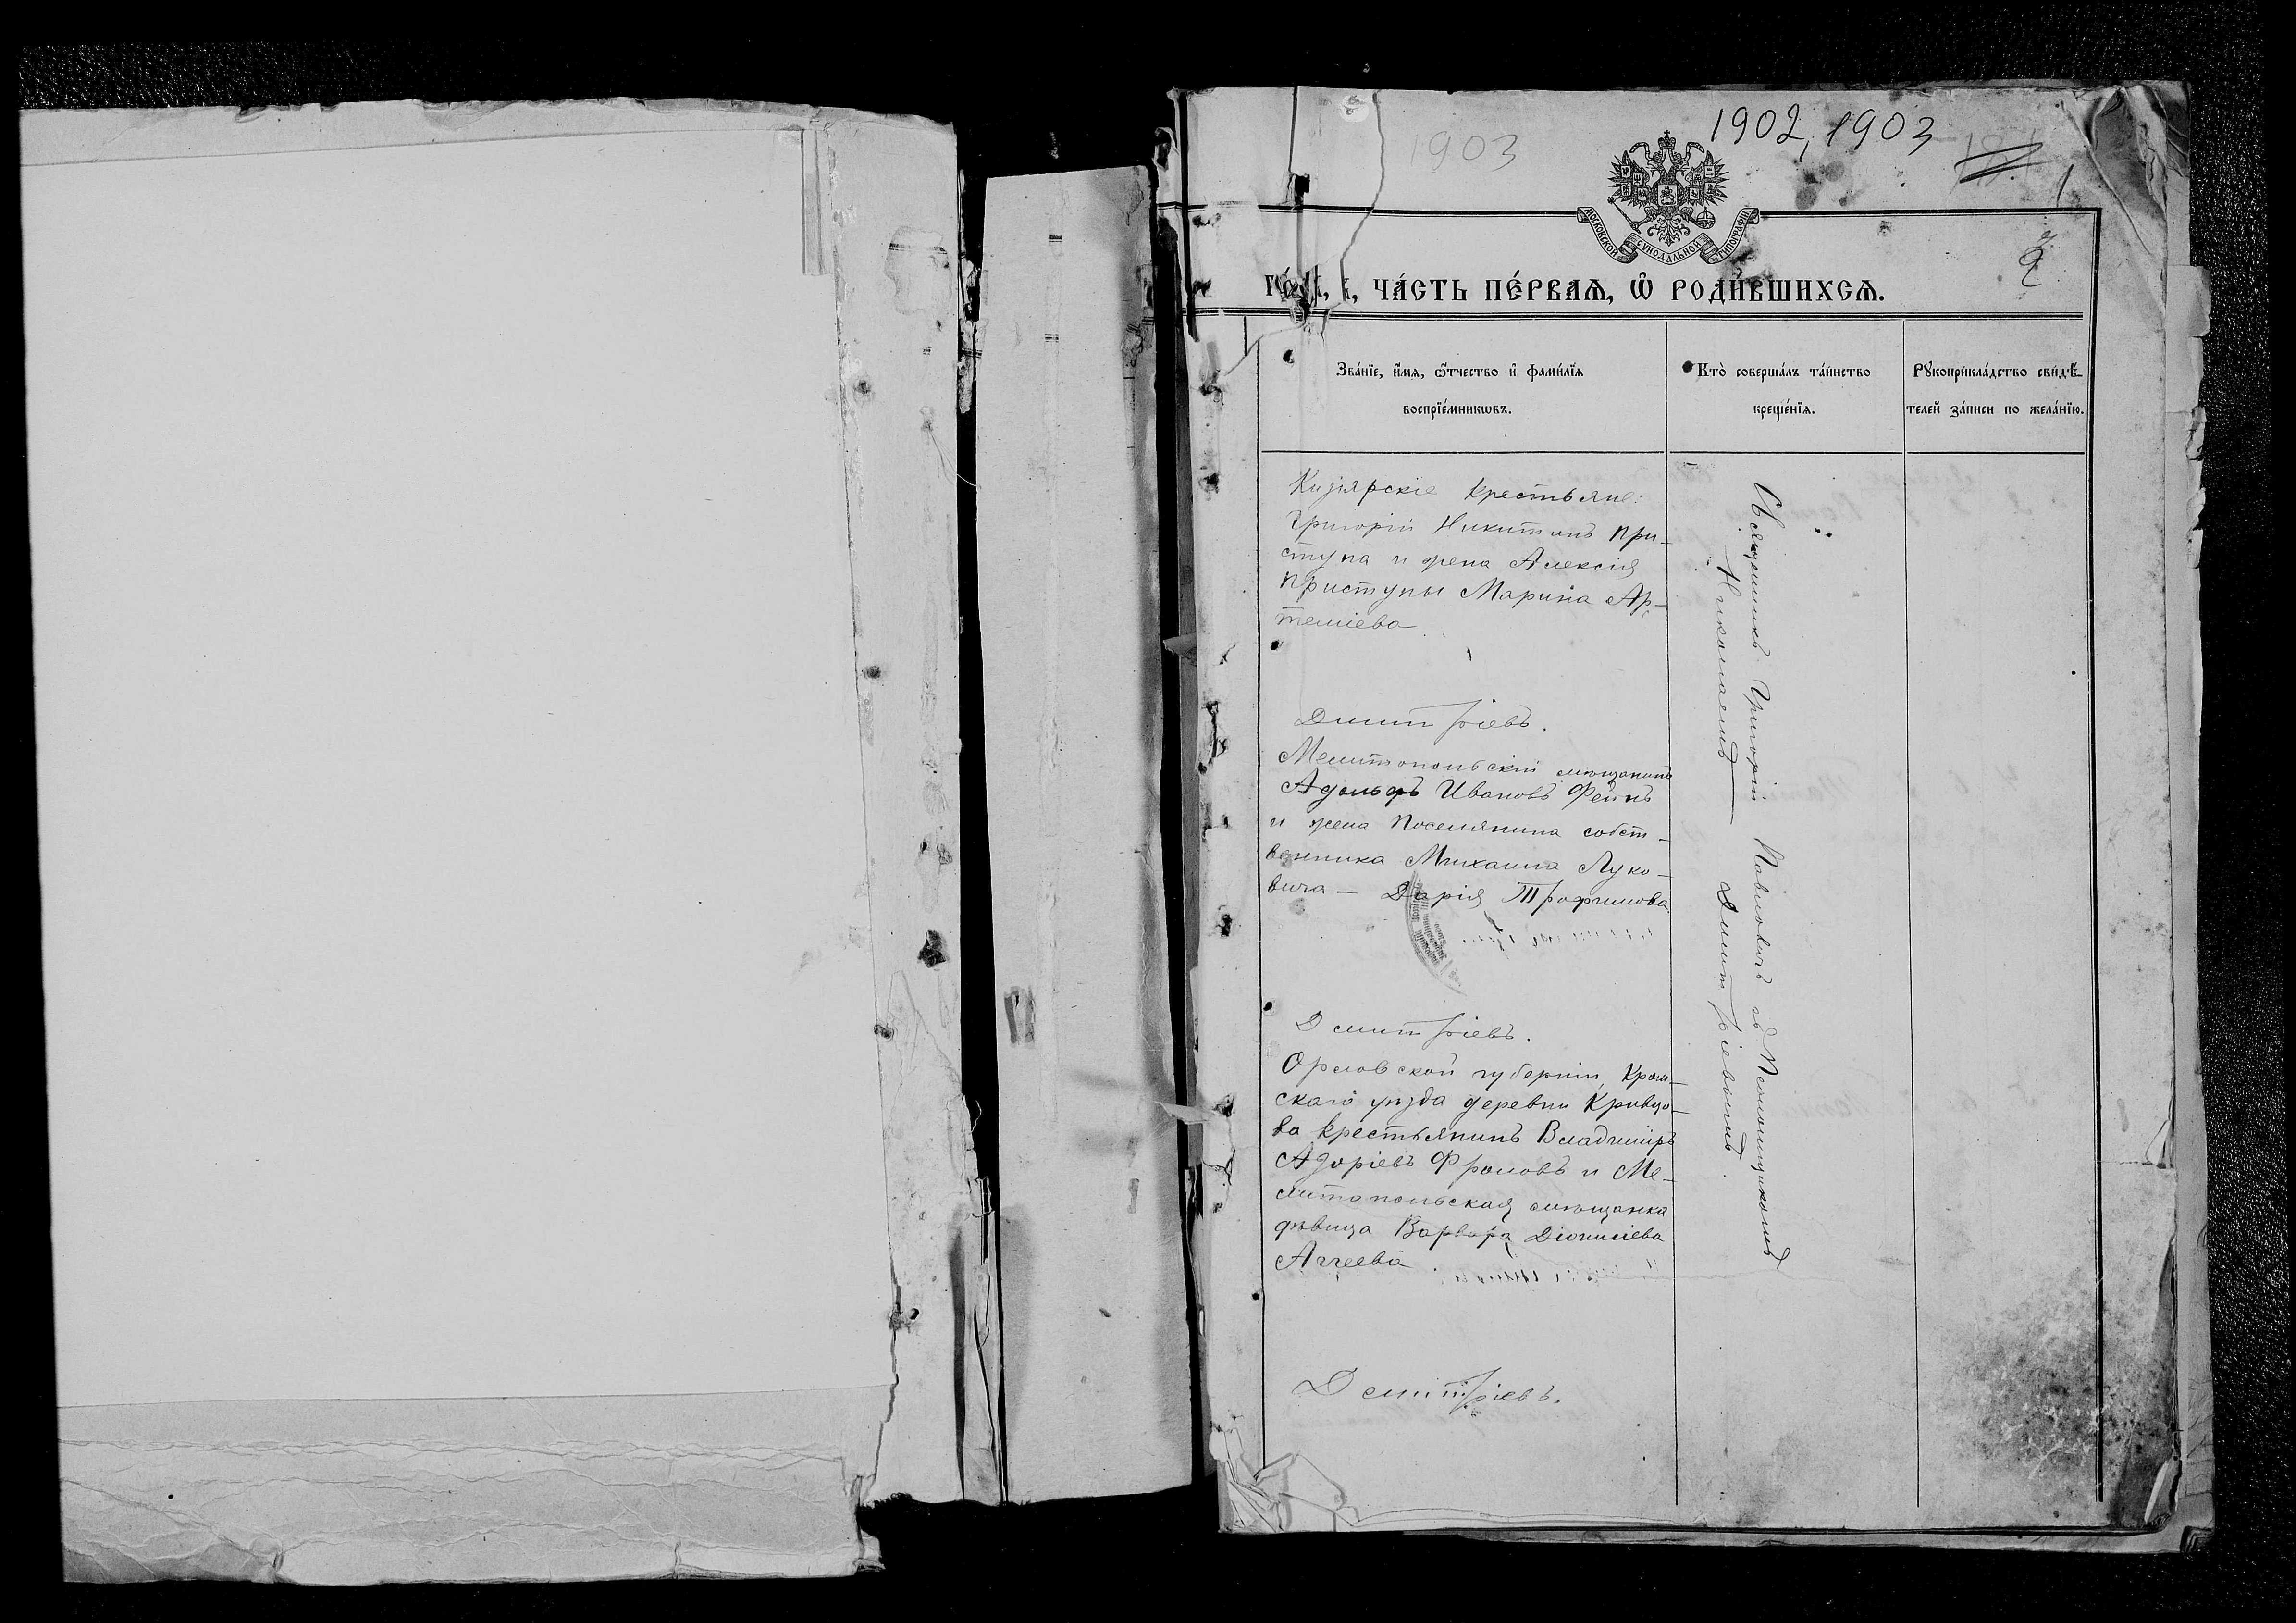 1903
1902, 1903
1
2
МОСКОВСКОЙ СѴНОДАЛЬНОЙ ТИПОГРАФІИ
ЧА́СТЬ ПЕ́РВАѦ, Ѡ҆ РОДИ́ВШИХСѦ.
Зва́нїе, и҆́мѧ, ѻ҆́тчество и҆ фами́лїѧ
воспрїе́мникѡвъ.
Кто̀ соверша́лъ та́инство
креще́нїѧ.
Рꙋкоприкла́дство свидѣ́-
телей за́писи по жела́нїю.
Кизіярскіе крестьяне:
Григорій Никитинъ При-
ступа и жена Алексія
Приступы Марина Ар-
теміева
Дмитріевъ.
Мелитопольскій мѣщанинъ
Адольфъ Ивановъ Фейнъ
и жена поселянина собст-
венника Михаила Луко-
вича - Дарія Трофимова.
Дмитріевъ.
Орловской губерніи, Кром-
скаго уѣзда деревни Кривцо-
ва крестьянинъ Владиміръ
Азоріевъ Фроловъ и Ме-
литопольская мѣщанка
дѣвица Варвара Діонисіева
Аггеева.
Дмитріевъ.
Священникъ Григорій Павловичъ съ Псаломщикомъ
Николаемъ Дмитріевымъ.